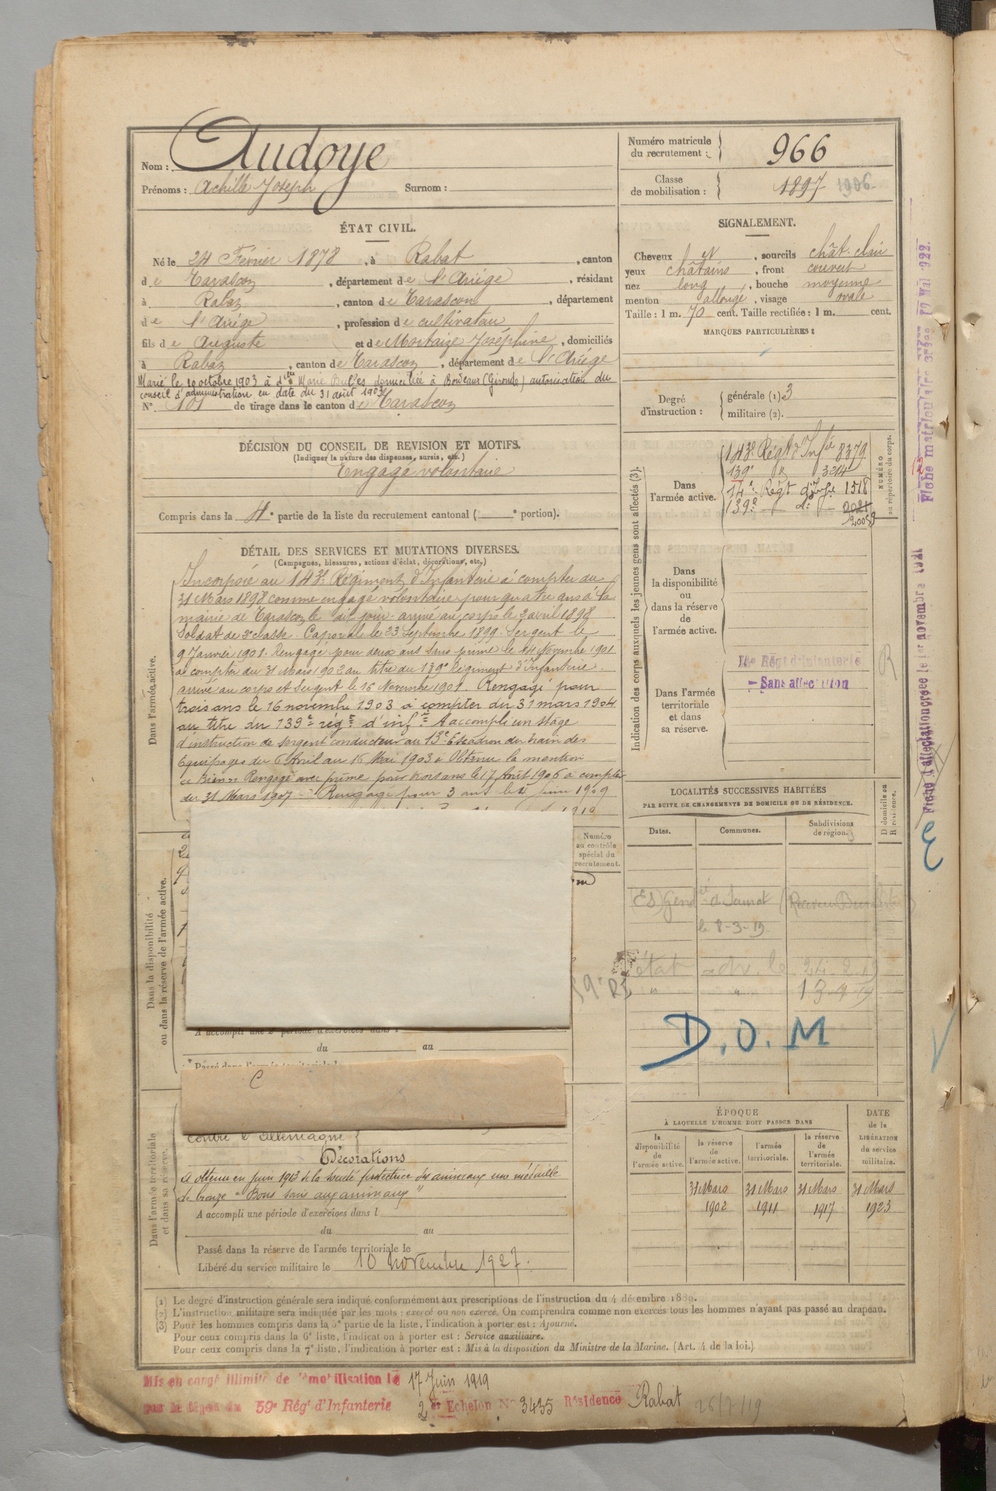 Nom : Audoye
Prénoms : Achille Joseph Surnom :
Numéro matricule du recrutement : 966
Classe de mobilisation : 1897 1906
ÉTAT CIVIL.
Né le 24 Février 1878, à Rabat, canton
de Tarascon, département de l'Ariège, résidant
à Rabat, canton de Tarascon, département
de l'Ariège, profession de cultivateur
fils de Auguste et de Joséphine, domiciliés
à Rabat, canton de Tarascon, département de l'Ariège
Marié le octobre 1903 à Marie domiciliée à Bordeaux (Gironde) autorisation du
conseil d'administration en date du 31 août 1903
N° 101 de tirage dans le canton de Tarascon
SIGNALEMENT.
Cheveux et, sourcils chât. clair
yeux châtains, front couvert
nez long, bouche moyenne
menton allongé, visage ovale
Taille : 1 m. 70 cent. Taille rectifiée : 1 m. cent.
MARQUES PARTICULIÈRES :
Degré d'instruction : générale (1) 3
militaire (2).
DÉCISION DU CONSEIL DE REVISION ET MOTIFS.
(Indiquer la nature des dispenses, sursis, etc.)
Engagé volontaire
Compris dans la 4e partie de la liste du recrutement cantonal ( e portion).
Indication des corps auxquels les jeunes gens sont affectés (3).
NUMÉRO au répertoire du corps.
Dans l'armée active.
143e Régt d'Infie 8379
139e
14e Régt d'Infie 1518
139e do
Dans la disponibilité ou dans la réserve de l'armée active.
Dans l'armée territoriale et dans sa réserve.
Régt d'Infanterie
Sans affectation
DÉTAIL DES SERVICES ET MUTATIONS DIVERSES.
(Campagnes, blessures, actions d'éclat, décorations, etc.)
Dans l'armée active.
Incorporé au 143e Régiment d'Infanterie à compter du
31 Mars 1898 comme engagé volontaire pour quatre ans à la
mairie de Tarascon le dit jour arrivé au corps le 2 avril 1898
Soldat de 2e classe. Caporal le 23 Septembre 1899. Sergent le
9 Janvier 1901. Rengagé pour deux ans sans prime le Novembre 1901
à compter du 31 Mars 1902 au titre du 139e régiment d'Infanterie.
arrivé au corps et Sergent le 16 Novembre 1901. Rengagé pour
trois ans le 16 novembre 1903 à compter du 31 mars 1904
au titre du 139e régt d'infie A accompli un stage
d'instruction de sergent conducteur au 13e Escadron du train des
Equipages du 6 Avril au 16 Mai 1903 a Obtenu la mention
Bien. Rengagé avec prime pour trois ans le 17 Août 1906 à compter
du 31 Mars 1907. Rengagé pour 3 ans le Juin 1909
Dans la disponibilité ou dans la réserve de l'armée active.
Numéro au contrôle spécial du recrutement.
A accompli une période d'exercices dans l
du au
Passé dans l'armée territoriale le
C
LOCALITÉS SUCCESSIVES HABITÉES
PAR SUITE DE CHANGEMENTS DE DOMICILE OU DE RÉSIDENCE.
Dates. Communes. Subdivisions de région. D domicile ou R résidence.
le 8-3-19
D.O.M
Dans l'armée territoriale et dans sa réserve.
contre l'Allemagne
Décorations
a obtenu en juin 1913 de la société protectrice des animaux une médaille
de bronze "Bons soins aux animaux"
A accompli une période d'exercices dans l
du au
Passé dans la réserve de l'armée territoriale le
Libéré du service militaire le 10 novembre 1927.
ÉPOQUE
À LAQUELLE L'HOMME DOIT PASSER DANS
DATE de la LIBÉRATION du service militaire.
la disponibilité de l'armée active. la réserve de l'armée active. l'armée territoriale. la réserve de l'armée territoriale.
31 Mars 1902 31 Mars 1911 31 Mars 1917 31 Mars 1923
(1) Le degré d'instruction générale sera indiqué conformément aux prescriptions de l'instruction du 4 décembre 1889.
(2) L'instruction militaire sera indiquée par les mots : exercé ou non exercé. On comprendra comme non exercés tous les hommes n'ayant pas passé au drapeau.
(3) Pour les hommes compris dans la 5e partie de la liste, l'indication à porter est : Ajourné.
Pour ceux compris dans la 6e liste, l'indication à porter est : Service auxiliaire.
Pour ceux compris dans la 7e liste, l'indication à porter est : Mis à la disposition du Ministre de la Marine. (Art. 4 de la loi.)
Mis en congé illimité de démobilisation le 17 Juin 1919
par le dépôt du 59e Régt d'Infanterie 2e Echelon N° 3435 Résidence Rabat